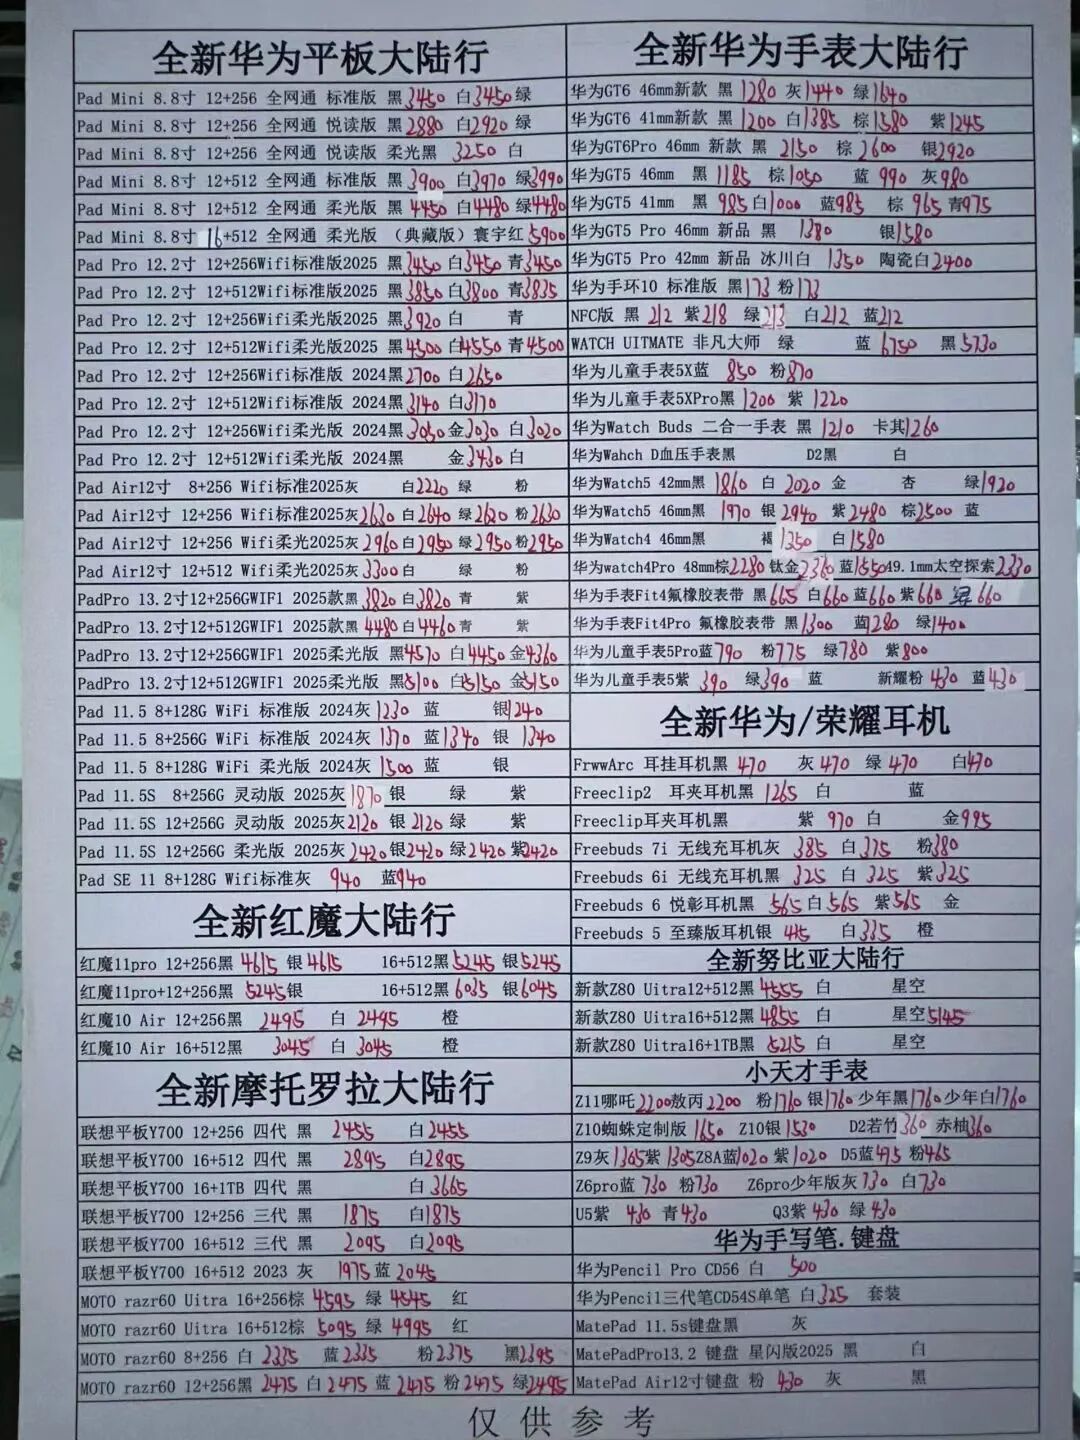 全新华为平板大陆行
Pad Mini 8.8寸 12+256 全网通 标准版 黑3450 白3450绿
Pad Mini 8.8寸 12+256 全网通 悦读版 黑2880 白2920 绿
Pad Mini 8.8寸 12+256 全网通 悦读版 柔光黑 3250 白
Pad Mini 8.8寸 12+512 全网通 标准版 黑3900 白3970 绿3990
Pad Mini 8.8寸 12+512 全网通 柔光版 黑4450 白4480绿4480
Pad Mini 8.8寸 16+512 全网通 柔光版 （典藏版）寰宇红5900
Pad Pro 12.2寸 12+256Wifi标准版2025 黑3450 白3450 青3450
Pad Pro 12.2寸 12+512Wifi标准版2025 黑3850白3800 青3835
Pad Pro 12.2寸 12+256Wifi柔光版2025 黑3920白 青
Pad Pro 12.2寸 12+512Wifi柔光版2025 黑4500 白4550 青4500
Pad Pro 12.2寸 12+256Wifi标准版 2024黑2700 白2650
Pad Pro 12.2寸 12+512Wifi标准版 2024黑3140 白3170
Pad Pro 12.2寸 12+256Wifi柔光版 2024黑3030金3030 白3020
Pad Pro 12.2寸 12+512Wifi柔光版 2024黑 金3430白
Pad Air12寸 8+256 Wifi标准2025灰 白2220 绿 粉
Pad Air12寸 12+256 Wifi标准2025灰2630 白2640 绿2620 粉2630
Pad Air12寸 12+256 Wifi柔光2025灰2960白2950 绿2950粉2950
Pad Air12寸 12+512 Wifi柔光2025灰3300白 绿 粉
PadPro 13.2寸12+256GWIF1 2025款黑3820 白3820 青 紫
PadPro 13.2寸12+512GWIF1 2025款黑4480 白4460青 紫
PadPro 13.2寸12+256GWIF1 2025柔光版 黑4570 白4450金4360
PadPro 13.2寸12+512GWIF1 2025柔光版 黑5100 白5150 金5150
Pad 11.5 8+128G WiFi 标准版 2024灰1230 蓝 银1240
Pad 11.5 8+256G WiFi 标准版 2024灰 1370 蓝1340 银 1340
Pad 11.5 8+128G WiFi 柔光版 2024灰 1500 蓝 银
Pad 11.5S 8+256G 灵动版 2025灰1870 银 绿 紫
Pad 11.5S 12+256G 灵动版 2025灰2120 银2120 绿 紫
Pad 11.5S 12+256G 柔光版 2025灰2420银2420 绿2420 紫2420
Pad SE 11 8+128G Wifi标准灰 940 蓝940
全新红魔大陆行
红魔11pro 12+256黑 4615 银4615 16+512黑5245 银5245
红魔11pro+12+256黑 5245银 16+512黑6035 银6045
红魔10 Air 12+256黑 2495 白 2495 橙
红魔10 Air 16+512黑 3045 白 3045 橙
全新摩托罗拉大陆行
联想平板Y700 12+256 四代 黑 2455 白2455
联想平板Y700 16+512 四代 黑 2895 白2895
联想平板Y700 16+1TB 四代 黑 白3665
联想平板Y700 12+256 三代 黑 1875 白1875
联想平板Y700 16+512 三代 黑 2095 白2095
联想平板Y700 16+512 2023 灰 1975 蓝 2045
MOTO razr60 Uitra 16+256棕 4595 绿 4545 红
MOTO razr60 Uitra 16+512棕 5095 绿 4995 红
MOTO razr60 8+256 白 2335 蓝2335 粉2375 黑2395
MOTO razr60 12+256黑 2475 白 2475 蓝 2475 粉 2475 绿2495
全新华为手表大陆行
华为GT6 46mm新款 黑 1280 灰1440 绿1640
华为GT6 41mm新款 黑 1200 白1385 棕1580 紫1245
华为GT6Pro 46mm 新款 黑 2150 棕 2600 银2920
华为GT5 46mm 黑 1185 棕1050 蓝 990 灰980
华为GT5 41mm 黑 985白1000 蓝985 棕 965 青975
华为GT5 Pro 46mm 新品 黑 1380 银1580
华为GT5 Pro 42mm 新品 冰川白 1350 陶瓷白2400
华为手环10 标准版 黑173 粉173
NFC版 黑 212 紫218 绿213 白212 蓝212
WATCH UITMATE 非凡大师 绿 蓝 6750 黑5730
华为儿童手表5X蓝 850 粉870
华为儿童手表5XPro黑 1200 紫 1220
华为Watch Buds 二合一手表 黑 1210 卡其1260
华为Wahch D血压手表黑 D2黑 白
华为Watch5 42mm黑 1860 白 2020 金 杏 绿1920
华为Watch5 46mm黑 1970 银 2940 紫2480 棕2500 蓝
华为Watch4 46mm黑 褐1350 白1580
华为watch4Pro 48mm棕2280 钛金2360 蓝155049.1mm太空探索2330
华为手表Fit4氟橡胶表带 黑665 白660 蓝660 紫660 660
华为手表Fit4Pro 氟橡胶表带 黑1300 蓝1280 绿1400
华为儿童手表5Pro蓝790 粉775 绿780 紫800
华为儿童手表5紫 390 绿390 蓝 新耀粉 430 蓝430
全新华为/荣耀耳机
FrwwArc 耳挂耳机黑 470 灰470 绿 470 白470
Freeclip2 耳夹耳机黑 1265 白 蓝
Freeclip耳夹耳机黑 紫 970 白 金995
Freebuds 7i 无线充耳机灰 385 白375 粉380
Freebuds 6i 无线充耳机黑 325 白 325 紫325
Freebuds 6 悦彰耳机黑 565白565 紫565 金
Freebuds 5 至臻版耳机银 415 白335 橙
全新努比亚大陆行
新款Z80 Uitra12+512黑4555 白 星空
新款Z80 Uitra16+512黑4855 白 星空5145
新款Z80 Uitra16+1TB黑 5215 白 星空
小天才手表
Z11哪吒2200敖丙2200 粉1760 银1760少年黑1760少年白1760
Z10蜘蛛定制版1650 Z10银1530 D2若竹360 赤柚360
Z9灰1305紫1305Z8A蓝1020 紫1020 D5蓝475 粉465
Z6pro蓝 730 粉730 Z6pro少年版灰730 白730
U5紫 430 青430 Q3紫430 绿 430
华为手写笔.键盘
华为Pencil Pro CD56 白 500
华为Pencil三代笔CD54S单笔 白325 套装
MatePad 11.5s键盘黑 灰
MatePadPro13.2 键盘 星闪版2025 黑 白
MatePad Air12寸键盘 粉 430 灰 黑
仅供参考